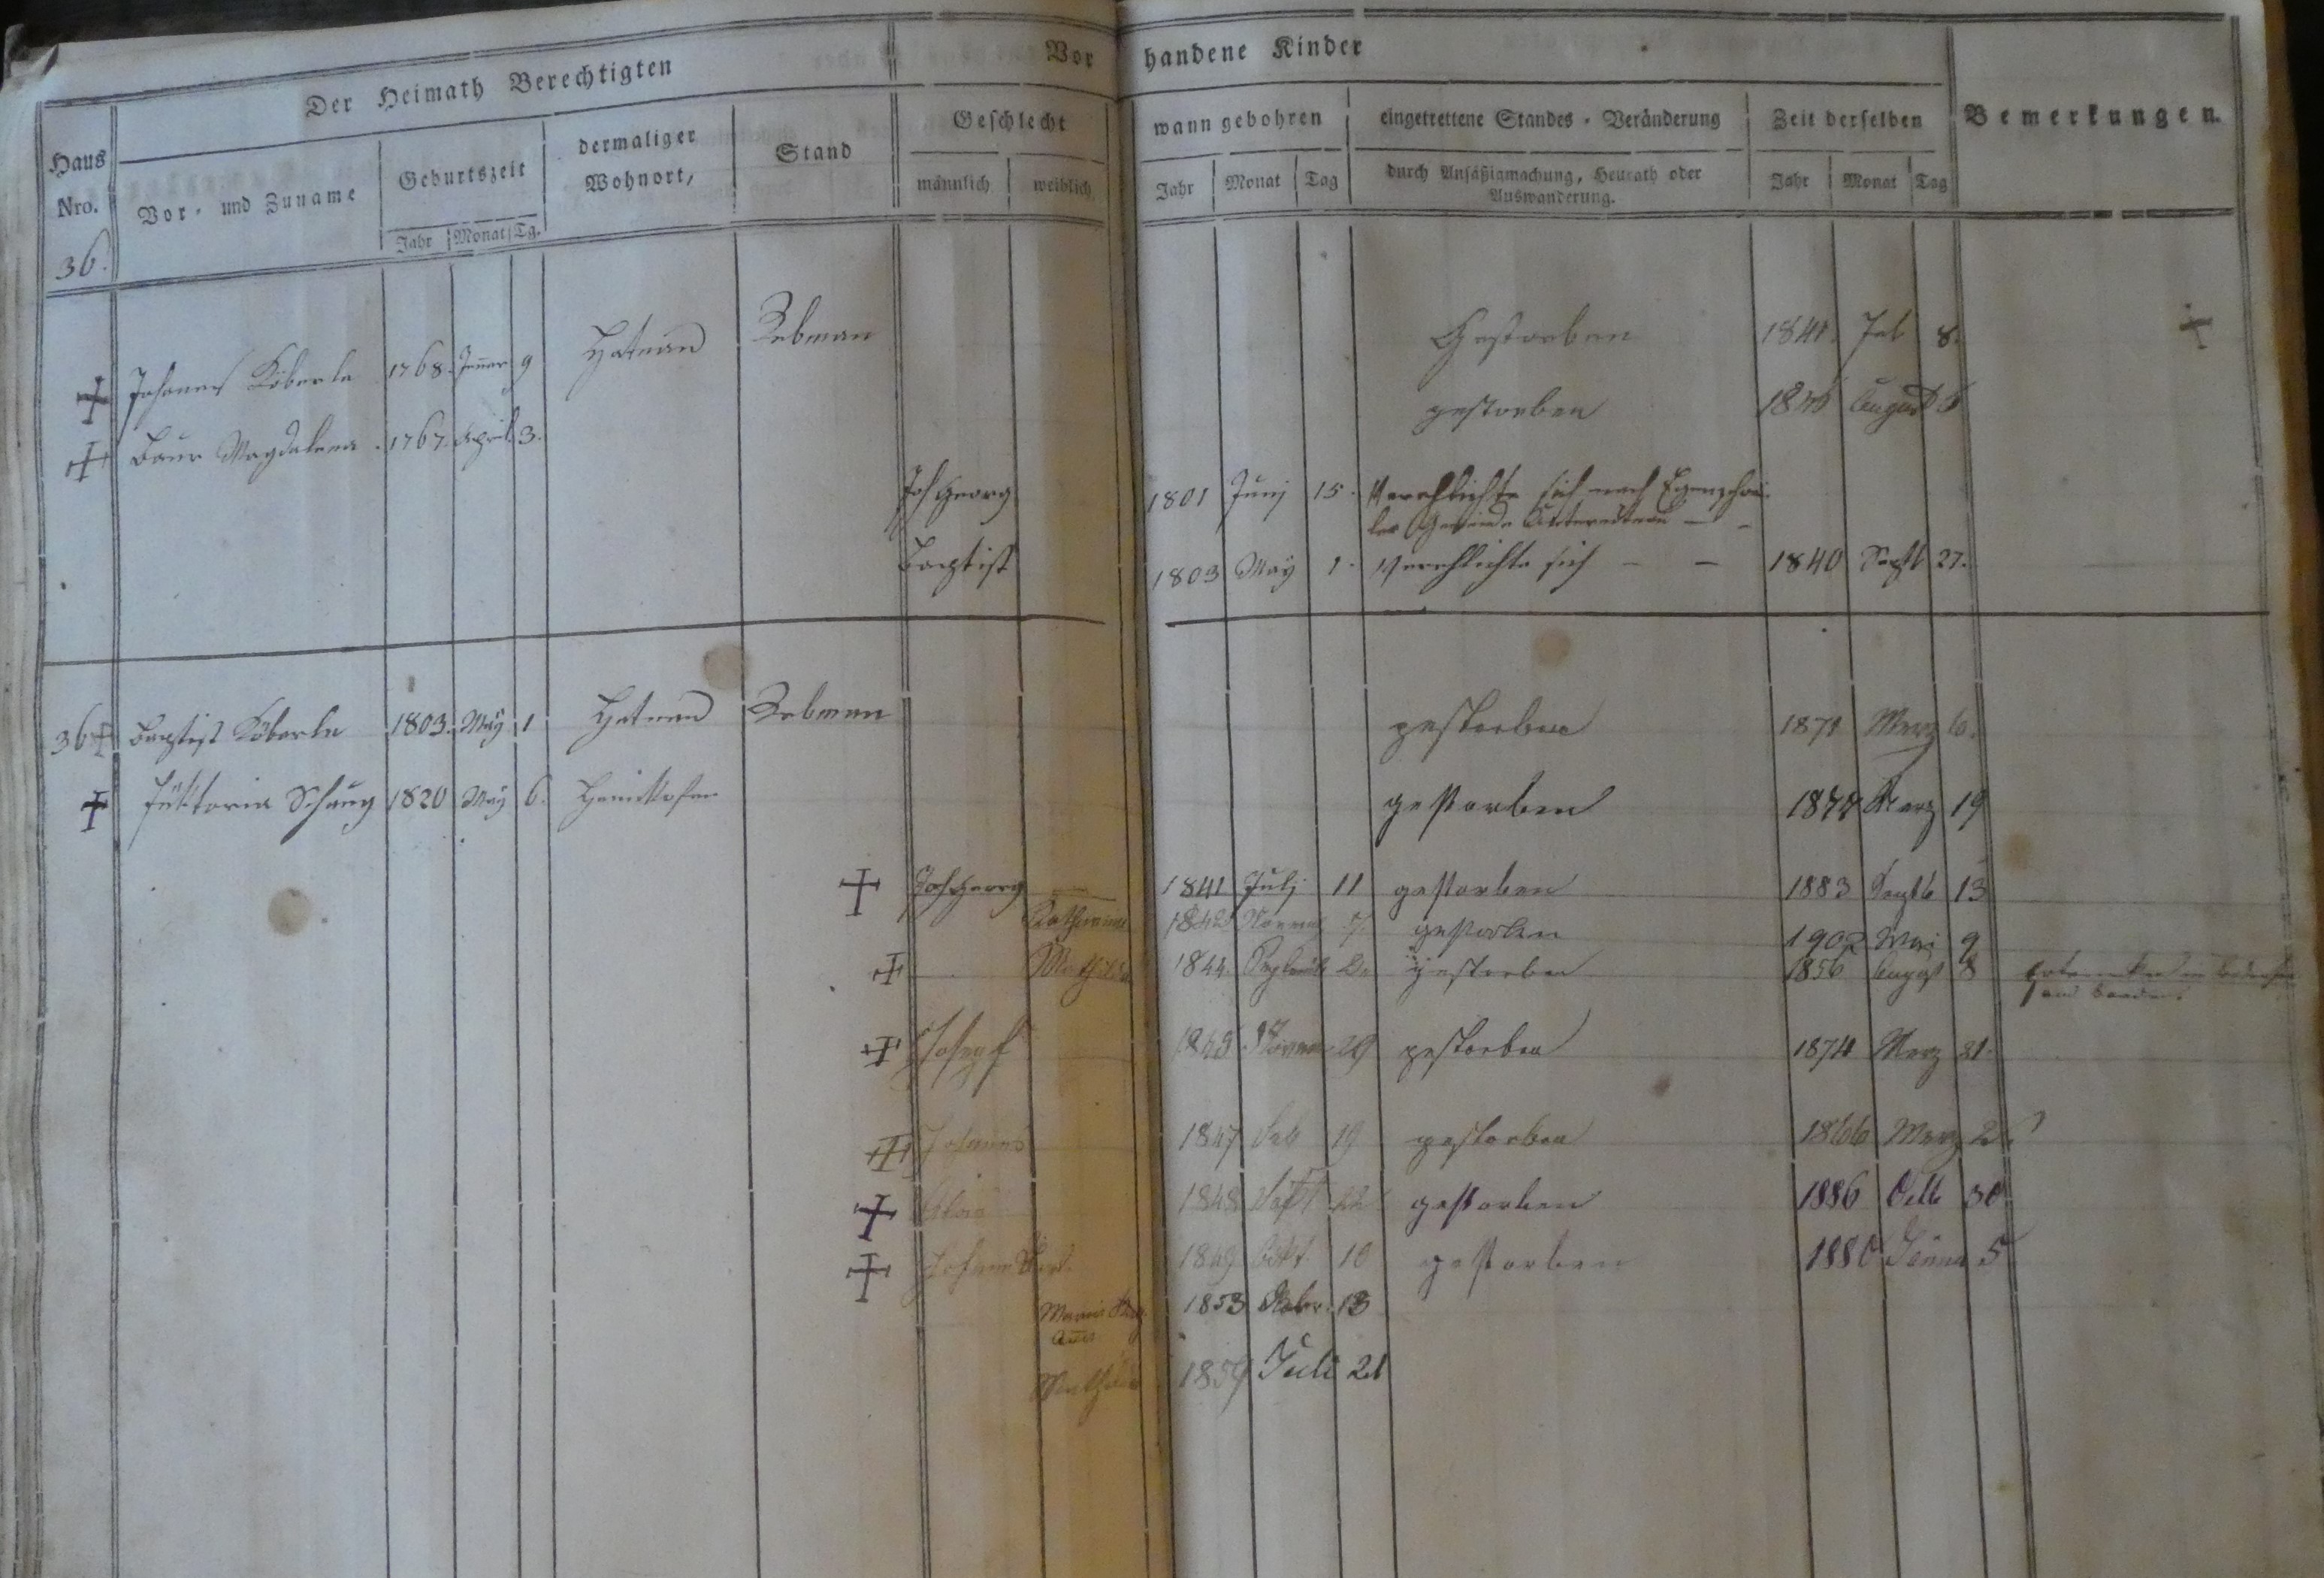 Der Heimath Berechtigten
Vorhandene Kinder
Bemerkungen.
Haus Nro.
Vor- und Zuname
Geburtszeit
Jahr Monat Tg.
dermaliger Wohnort,
Stand
Geschlecht
männlich weiblich
wann gebohren
Jahr Monat Tag
eingetrettene Standes-Veränderung
durch Ansäßigmachung, Heurath oder
Auswanderung.
Zeit derselben
Jahr Monat Tag
36.
Johannes Köberle 1768. Jenner 9 Hatnau Rebman Gestorben 1841. Feb 8.
Baur Magdalena 1767. April 3. gestorben August
Joh Georg 1801 Junj 15. Verehlichte sich nach
Gemeinde
Baptist 1803 May 1. verehlichte sich – – 1840 Septb 27.
36 Baptist Köberle 1803. May 1 Hatnau Rebman gestorben 1871 Merz 6.
Schaug 1820 May 6. gestorben Merz 19
Joh Georg 1841 Julj 11 gestorben 1883 Septb 13
Katharina 7. gestorben 1902 Mai 9
Mathilda 1844. gestorben 1856 August 8
Josepf gestorben 1874 Merz 31.
Johannes 1847 Feb 19 gestorben 1866 Merz
Alois 1848 22 gestorben 1886 Octb 30.
Johann 1849 Ockt. 10 gestorben 1880 5
Maria
Anna 1853 13
Mathilda 1859 Juli 21